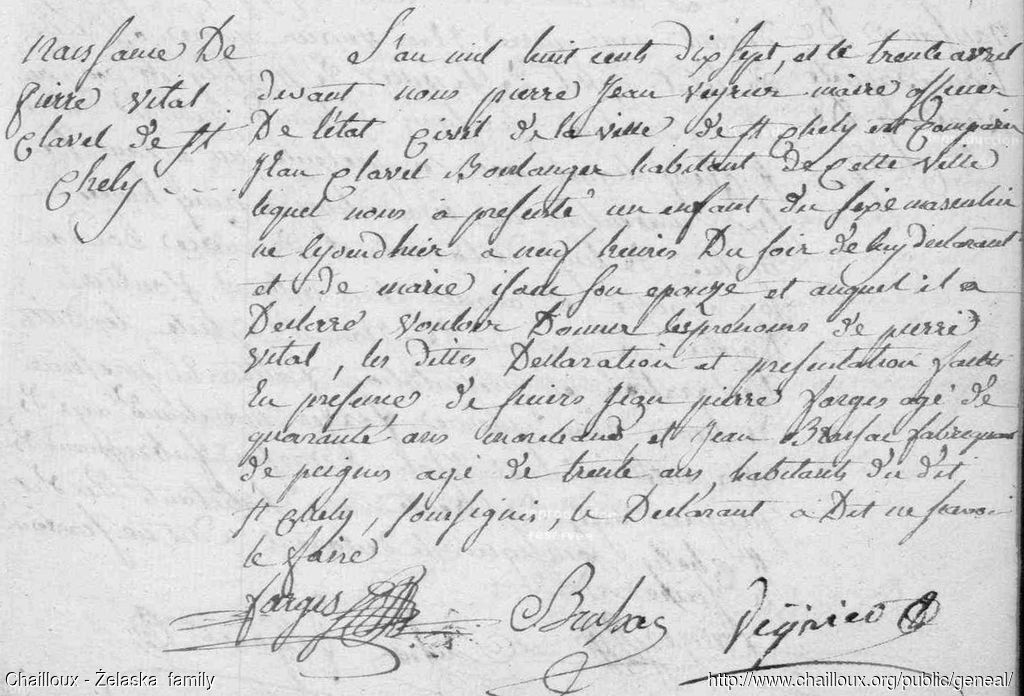 Naissance De
Pierre vital
Clavel de st
Chely
L'an mil huit cents dix sept, et le trente avril
devant nous pierre Jean Veyrier maire officier
De l'état Civil de la ville de st Chely est Comparu
Jean Clavel Boulanger habitant de Cette ville
lequel nous à presenté un enfant du sexe masculin
né a neuf heures Du soir de luy declarant
et de marie son epouze, et auquel il a
Declaré vouloir Donner les prénoms de pierre
vital, les dittes Declaration et presentation faittes
En presence de sieurs Jean pierre farges agé de
quarante ans marchand, et Jean Brassac fabriquant
de peignes agé de trente ans, habitants du dit
st Chely, soussignés, le Declarant à Dit ne savoir
le faire
farges Brassac Veyrier
Chailloux - Żelaska family http://www.chailloux.org/public/geneal/